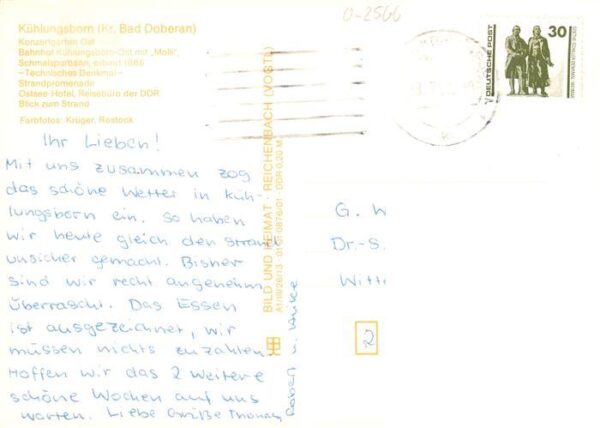 0-2566
Kühlungsborn (Kr. Bad Doberan)
Konzertgarten Ost
Bahnhof Kühlungsborn-Ost mit „Molli“,
Schmalspurbahn, erbaut 1886
–Technisches Denkmal–
Strandpromenade
Ostsee-Hotel, Reisebüro der DDR
Blick zum Strand
Farbfotos: Krüger, Rostock
Ihr Lieben!
Mit uns zusammen zog
das schöne Wetter in Küh-
lungsborn ein. So haben
wir heute gleich den Strand
unsicher gemacht. Bisher
sind wir recht angenehm
überrascht. Das Essen
ist ausgezeichnet, wir
müssen nichts zuzahlen.
Hoffen wir das 2 weitere
schöne Wochen auf uns
warten. Liebe Grüße Thomas,
Robert u. Anke
BILD UND HEIMAT · REICHENBACH (VOGTL)
DDR 0,20 M
DEUTSCHE POST
30
G. W
Dr.-S.
Witt
2